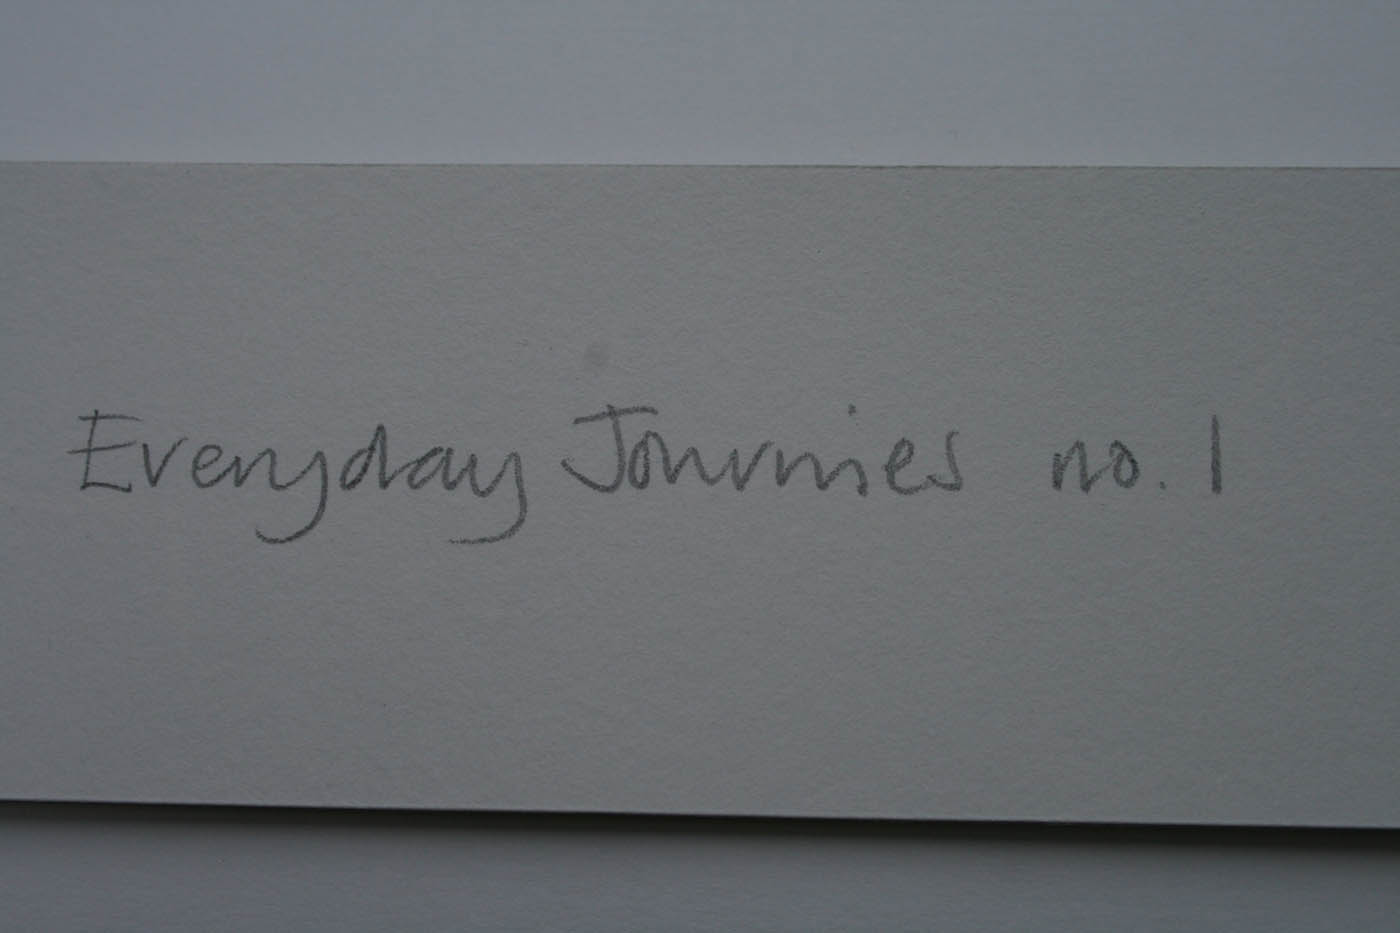 Everyday Journies no. 1